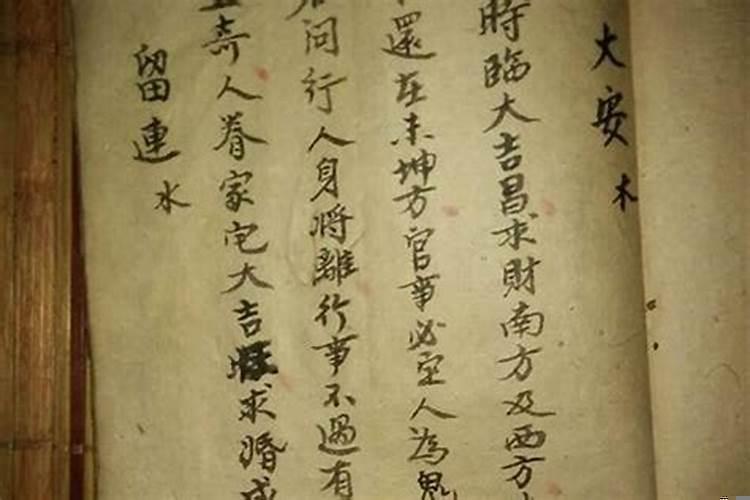 大安木
時臨大吉昌求財南方及西方
還在未坤方官事必空人為鬼
問行人身將離行事不遇有
奇人眷家宅大吉求婚成
留連水